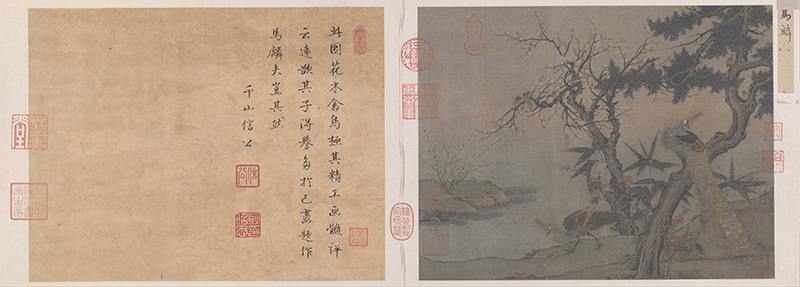 馬麟
此圖花木禽鳥極其精工画髓評
云遠欲其子得譽多於己畫題作
馬麟夫豈其然
千山信公
信公